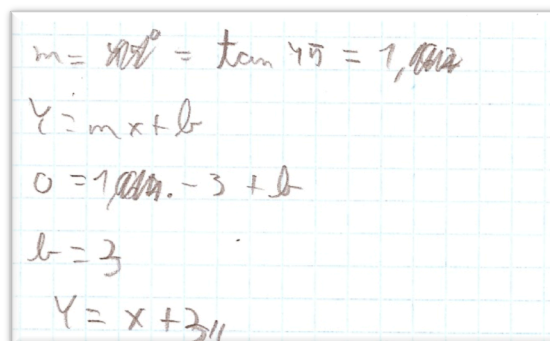 m = = tan 45 = 1,
Y = mx + b
0 = 1 . - 3 + b
b = 3
Y = x + 3 //